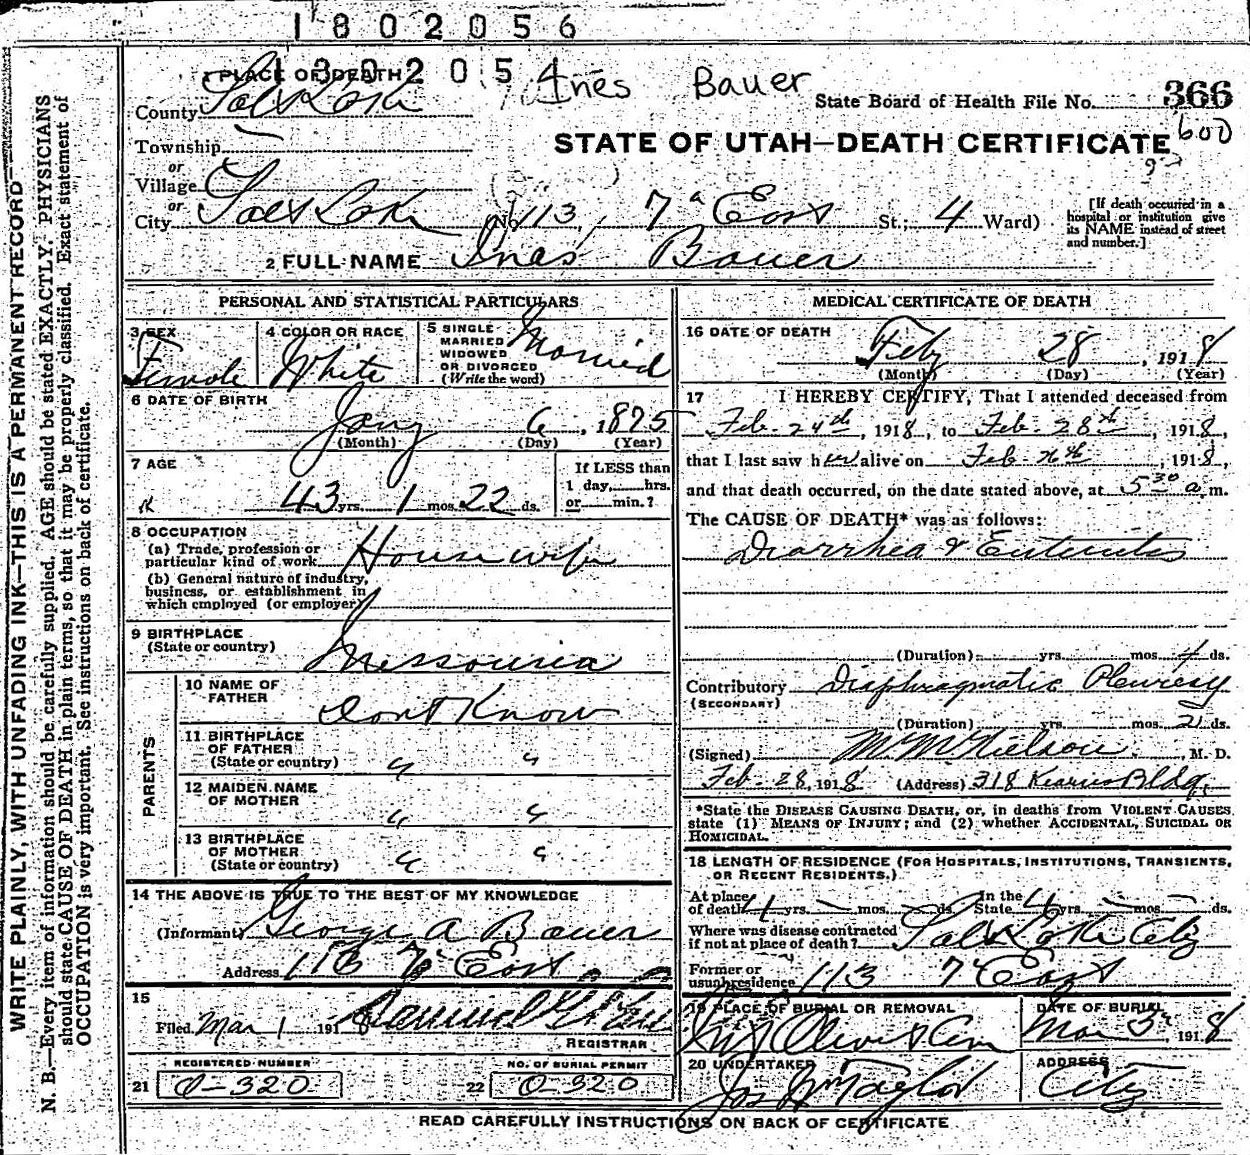 1802056
1302054
1 PLACE OF DEATH
Ines Bauer
County Salt Lake
State Board of Health File No. 366
600
Township
STATE OF UTAH—DEATH CERTIFICATE
or
Village
or
City Salt Lake (No. 113, 7" East St.; 4 Ward)
[If death occurred in a hospital or institution give its NAME instead of street and number.]
2 FULL NAME Ines Bauer
PERSONAL AND STATISTICAL PARTICULARS
3 SEX Female
4 COLOR OR RACE White
5 SINGLE MARRIED WIDOWED OR DIVORCED (Write the word) Married
6 DATE OF BIRTH
Jany 6, 1875
(Month) (Day) (Year)
7 AGE
43 yrs. 1 mos. 22 ds.
If LESS than 1 day, hrs. or min.?
8 OCCUPATION
(a) Trade, profession or particular kind of work Housewife
(b) General nature of industry, business, or establishment in which employed (or employer)
9 BIRTHPLACE
(State or country) Missouria
PARENTS
10 NAME OF FATHER Dont Know
11 BIRTHPLACE OF FATHER (State or country) " "
12 MAIDEN NAME OF MOTHER " "
13 BIRTHPLACE OF MOTHER (State or country) " "
14 THE ABOVE IS TRUE TO THE BEST OF MY KNOWLEDGE
(Informant) George A Bauer
Address 113 7" East
15
Filed Mar 1 1918
REGISTRAR
REGISTERED NUMBER
21 O-320
NO. OF BURIAL PERMIT
22 O-320
MEDICAL CERTIFICATE OF DEATH
16 DATE OF DEATH
Feby 28, 1918
(Month) (Day) (Year)
17 I HEREBY CERTIFY, That I attended deceased from
Feb. 24th, 1918, to Feb. 28th, 1918,
that I last saw her alive on Feb. , 1918,
and that death occurred, on the date stated above, at 5 30 a. m.
The CAUSE OF DEATH* was as follows:
Diarrhea & Enteritis
(Duration) yrs. mos. 4 ds.
Contributory Diaphragmatic Pleuresy
(SECONDARY)
(Duration) yrs. mos. 2 ds.
(Signed) M. M. Nielson, M. D.
Feb. 28, 1918 (Address) 318 Kearns Bldg.
*State the DISEASE CAUSING DEATH, or, in deaths from VIOLENT CAUSES
state (1) MEANS OF INJURY; and (2) whether ACCIDENTAL, SUICIDAL OR
HOMICIDAL.
18 LENGTH OF RESIDENCE (FOR HOSPITALS, INSTITUTIONS, TRANSIENTS,
OR RECENT RESIDENTS.)
At place of death 4 yrs. — mos. — ds. In the State 4 yrs. — mos. — ds.
Where was disease contracted if not at place of death? Salt Lake City
Former or usual residence 113 7" East
19 PLACE OF BURIAL OR REMOVAL Mt Olivet Cem
DATE OF BURIAL Mar 3", 1918
20 UNDERTAKER Jos Wm Taylor
ADDRESS City
READ CAREFULLY INSTRUCTIONS ON BACK OF CERTIFICATE
WRITE PLAINLY, WITH UNFADING INK—THIS IS A PERMANENT RECORD
N. B.—Every item of information should be carefully supplied. AGE should be stated EXACTLY. PHYSICIANS
should state CAUSE OF DEATH in plain terms, so that it may be properly classified. Exact statement of
OCCUPATION is very important. See instructions on back of certificate.